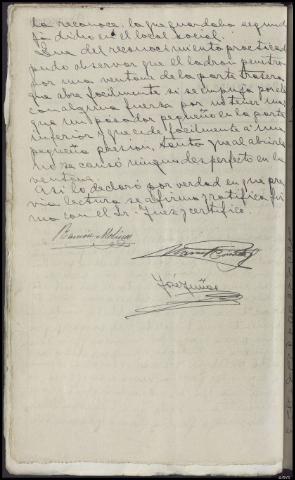 la reconoce, la que guardaba segun
ja dicho en el local social.
Que del reconocimiento practicado
pudo observar que el ladrón penetró
por una ventana de la parte trasera
que abre facilmente si se empuja por ella
con alguna fuerza por no tener mas
que un pasador pequeño en la parte
inferior y que cede facilmente a una
pequeña presion, tanto que al abrirla
no se causó ningun desperfecto en la
ventana.
Asi lo declaró por verdad en que pre
via lectura se afirma y ratifica fir
ma con el Sr. Juez y certifico.
Ramón
José Muñoz